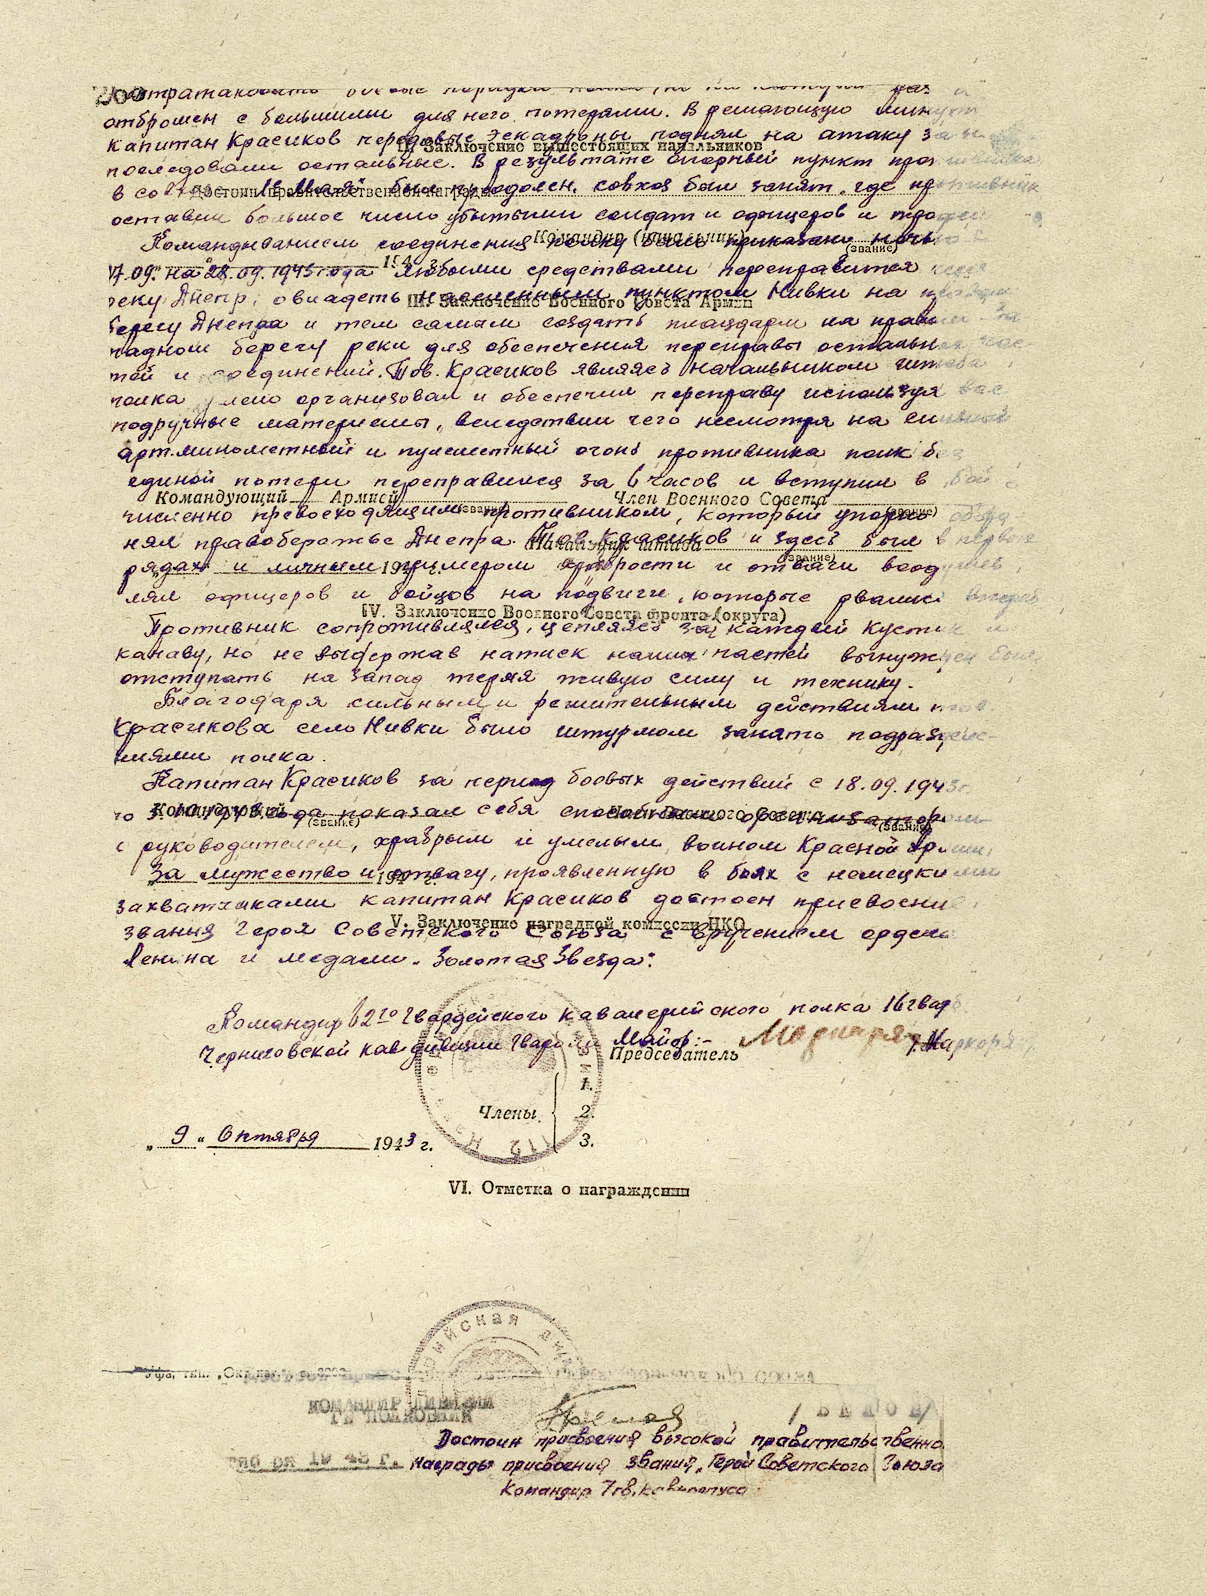 контратаковать боевые порядки полка, но на каждый раз и
отброшен с большими для него потерями. В решающую минуту
капитан Красиков передовые эскадроны поднял на атаку за ним
III Заключение вышестоящих начальников
последовали остальные. В результате опорный пункт противника
в совхозе "1е Мая" был преодолен, совхоз был занят, где противник
Достоин правительственной награды
оставил большое число убитыми солдат и офицеров и трофеи
Командованием соединения полку было приказано ночью
Командир (начальник)
(звание)
27.09. на 28.09.1943 года любыми средствами переправится через
194 г.
реку Днепр, овладеть населенным пунктом Нивки на правом
III. Заключение Военного Совета Армии
берегу Днепра и тем самым создать плацдарм на право за-
падном берегу реки для обеспечения переправы остальных час-
тей и соединений. Тов. Красиков являясь начальником штаба
полка умело организовал и обеспечил переправу используя все
подручные материалы, вследствии чего несмотря на сильный
арт. минометный и пулеметный огонь противника полк без
единой потери переправился за 6 часов и вступил в бой с
Командующий Армией Член Военного Совета
(звание) (звание)
численно превосходящим противником, который упорно оборо-
нял правобережье Днепра. Тов. Красиков и здесь был в первых
Начальник штаба
(звание)
рядах и личным примером храбрости и отваги воодушев-
194 г.
лял офицеров и бойцов на подвиги, которые рвались вперед
IV. Заключение Военного Совета фронта (округа)
Противник сопротивлялся, цепляясь за каждый кустик и
канаву, но не выдержав натиск наших частей вынужден был
отступать на запад теряя живую силу и технику.
Благодаря сильным и решительным действиям тов.
Красикова село Нивки было штурмом занято подразделе-
ниями полка.
Капитан Красиков за период боевых действий с 18.09.1943г.
по года показал себя способным организатором
Командующий Член Военного Совета
(звание) (звание)
и руководителем, храбрым и умелым воином Красной Армии.
За мужество и отвагу, проявленную в боях с немецкими
194 г.
захватчиками капитан Красиков достоен присвоения
V. Заключение наградной комиссии НКО
звания Героя Советского Союза с вручением ордена
Ленина и медали "Золотая Звезда".
Командир 62го Гвардейского кавалерийского полка 16 гвард
Черниговской кав дивизии Гвардии Майор:-
Председатель
1.
Члены 2.
3.
„9“ Октября 1943 г.
VI. Отметка о награждении
КОМАНДИР ДИВИЗИИ
ГВ ПОЛКОВНИК
/БЕЛОВ/
Достоин присвоения высокой правительственно
награды присвоения звания „Герой Советского Союза
Командир 7 гв. кавкорпуса